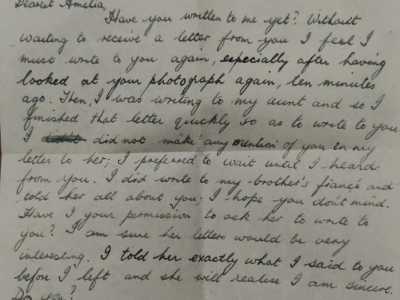 Dearest Amelia,
Have you written to me yet? Without
waiting to receive a letter from you I feel I
must write to you again, especially after having
looked at your photograph again, ten minutes
ago. Then, I was writing to my aunt and so I
finished that letter quickly so as to write to you
I did not make any mention of you in my
letter to her; I preferred to wait until I heard
from you. I did write to my brother's fiancé and
told her all about you; I hope you don't mind.
Have I your permission to ask her to write to
you? I am sure her letters would be very
interesting. I told her exactly what I said to you
before I left and she will realise I am sincere.
Do you?